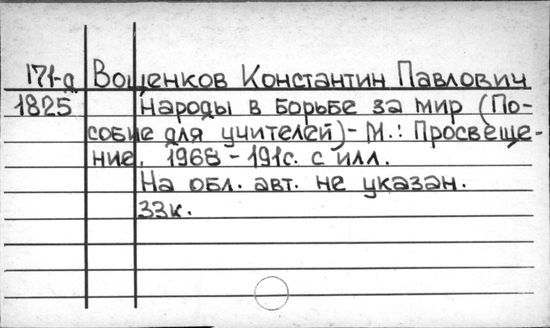 171-д Вощенков Константин Павлович
1825 Народы в борьбе за мир (По-
собие для учителей)- М.: Просвеще-
ние. 1968 - 191с. с илл.
На обл. авт. не указан.
33к.